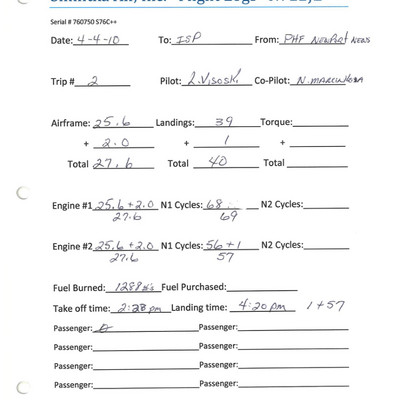 Serial # 760750 S76C++
Date: 4-4-10 To: ISP From: PHF NEWPORT NEWS
Trip # 2 Pilot: L. Visoski Co-Pilot: N.
Airframe: 25.6 Landings: 39 Torque:
+ 2.0 + 1 +
Total 27.6 Total 40 Total
Engine #1 25.6 + 2.0 N1 Cycles: 68 N2 Cycles:
27.6 69
Engine #2 25.6 + 2.0 N1 Cycles: 56 + 1 N2 Cycles:
27.6 57
Fuel Burned: 1288 #'s Fuel Purchased:
Take off time: pm Landing time: 4:20 pm 1 + 57
Passenger: Passenger:
Passenger: Passenger:
Passenger: Passenger:
Passenger: Passenger: